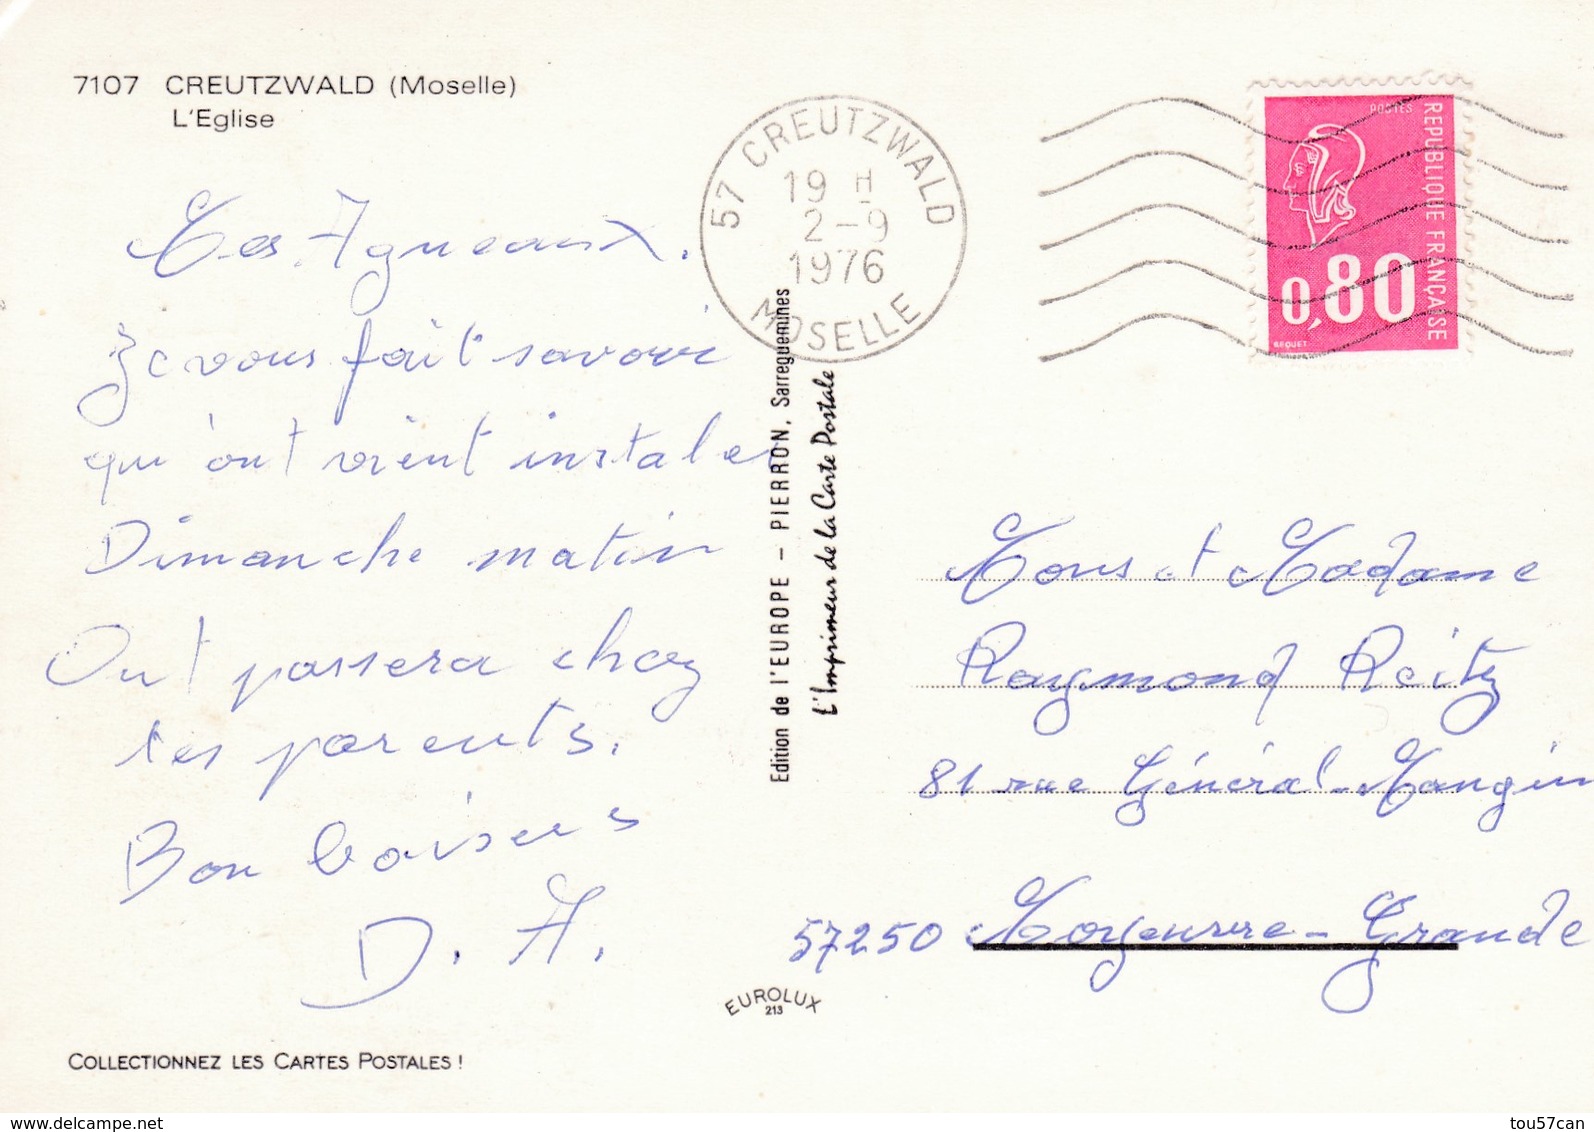 7107 CREUTZWALD (Moselle)
L'Eglise
57 CREUTZWALD
19 H
2-9
1976
MOSELLE
POSTES
REPUBLIQUE FRANÇAISE
0,80
BEQUET
Les Agneaux.
Je vous fait savoir
qu'ont vient instaler
Dimanche matin
Ont passera chez
les parents.
Bon baisers
D. A.
Edition de l'EUROPE – PIERRON, Sarreguemines
L'Imprimeur de la Carte Postale
Mons et Madame
Raymond Reitz
81 rue Général-Mangin
57250 Moyeuvre-Grande
EUROLUX
213
COLLECTIONNEZ LES CARTES POSTALES !
delcampe.net
tou57can